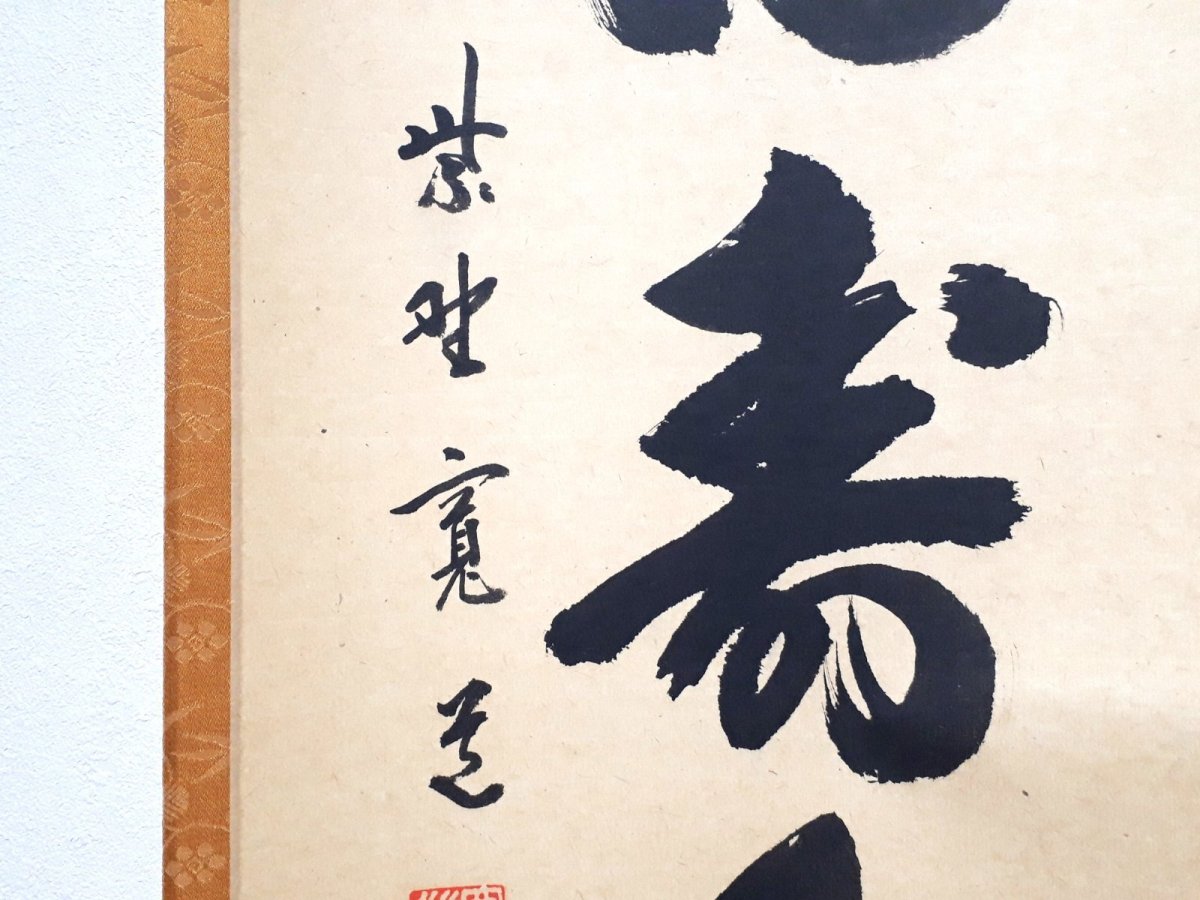 寿
紫野寛道